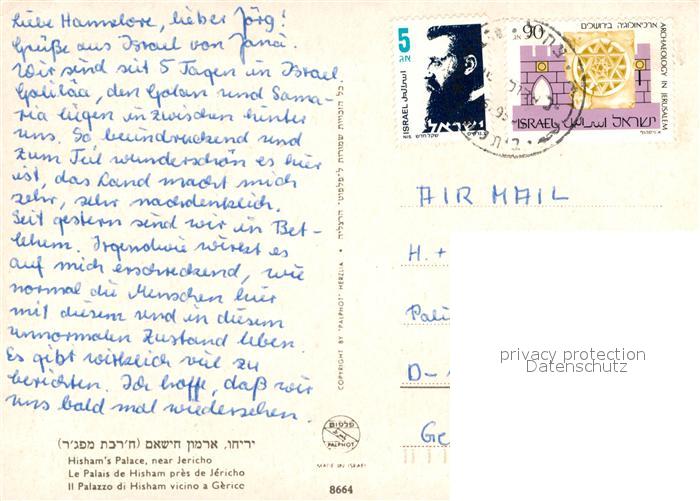 Liebe Hannelore, lieber Jörg!
Grüße aus Israel von Jana.
Wir sind seit 5 Tagen in Israel
Galiläa, den Golan und Sama-
ria liegen inzwischen hinter
uns. So beeindruckend und
zum Teil wunderschön es hier
ist, das Land macht mich
sehr, sehr nachdenklich.
Seit gestern sind wir in Bet-
lehem. Irgendwie wirkt es
auf mich erschreckend, wie
normal die Menschen hier
mit diesem und in diesem
unnormalen Zustand leben.
Es gibt wirklich viel zu
berichten. Ich hoffe, daß wir
uns bald mal wiedersehen.
יריחו, ארמון הישאם (ח׳רבת מפג׳ר)
Hisham's Palace, near Jericho
Le Palais de Hisham près de Jéricho
Il Palazzo di Hisham vicino a Gèrico
כל הזכויות שמורות ל"פלפוט" הרצליה
COPYRIGHT BY "PALPHOT" HERZLIA
פלפוט
PALPHOT
MADE IN ISRAEL
8664
5
אג
ISRAEL
ישראל
NIS שקל חדש
90
אג
ארכיאולוגיה בירושלים
ARCHAEOLOGY IN JERUSALEM
ISRAEL اسرائيل ישראל
AIR MAIL
H. +
D-
Ge
privacy protection
Datenschutz